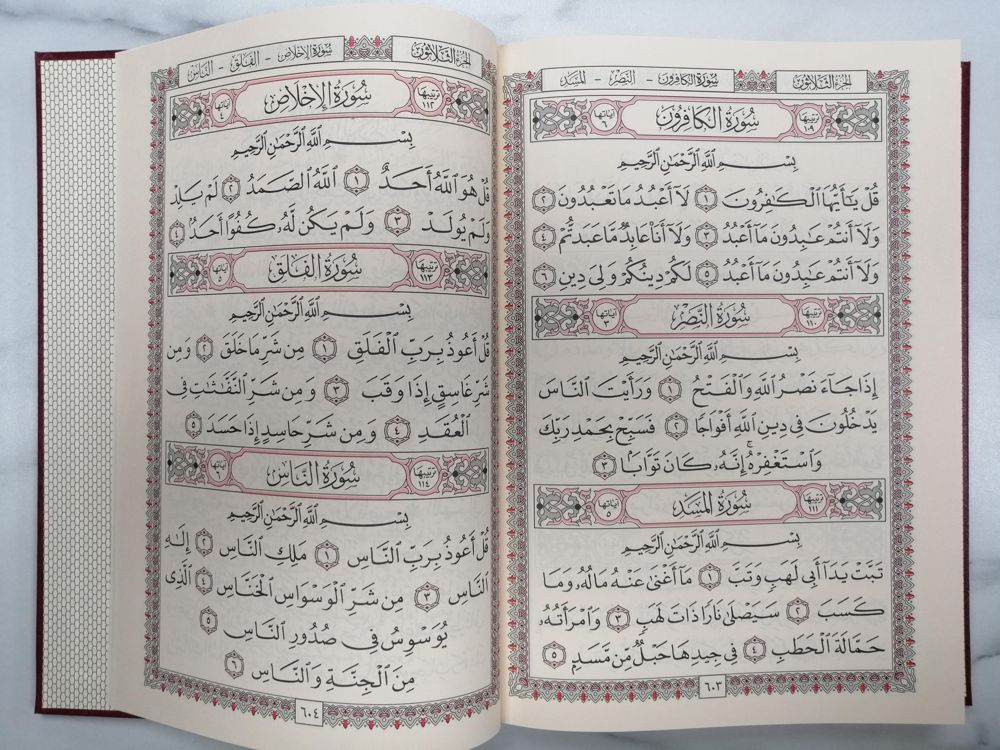 الجزء الثلاثون
سورة الكافرون - النصر - المسد
ترتيبها ١٠٩ سورة الكافرون آياتها ٦
بِسْمِ اللَّهِ الرَّحْمَٰنِ الرَّحِيمِ
قُلْ يَٰٓأَيُّهَا ٱلْكَٰفِرُونَ ١ لَآ أَعْبُدُ مَا تَعْبُدُونَ ٢
وَلَآ أَنتُمْ عَٰبِدُونَ مَآ أَعْبُدُ ٣ وَلَآ أَنَا۠ عَابِدٌ مَّا عَبَدتُّمْ ٤
وَلَآ أَنتُمْ عَٰبِدُونَ مَآ أَعْبُدُ ٥ لَكُمْ دِينُكُمْ وَلِىَ دِينِ ٦
ترتيبها ١١٠ سورة النصر آياتها ٣
بِسْمِ اللَّهِ الرَّحْمَٰنِ الرَّحِيمِ
إِذَا جَآءَ نَصْرُ ٱللَّهِ وَٱلْفَتْحُ ١ وَرَأَيْتَ ٱلنَّاسَ
يَدْخُلُونَ فِى دِينِ ٱللَّهِ أَفْوَاجًا ٢ فَسَبِّحْ بِحَمْدِ رَبِّكَ
وَٱسْتَغْفِرْهُ ۚ إِنَّهُۥ كَانَ تَوَّابًۢا ٣
ترتيبها ١١١ سورة المسد آياتها ٥
بِسْمِ اللَّهِ الرَّحْمَٰنِ الرَّحِيمِ
تَبَّتْ يَدَآ أَبِى لَهَبٍ وَتَبَّ ١ مَآ أَغْنَىٰ عَنْهُ مَالُهُۥ وَمَا
كَسَبَ ٢ سَيَصْلَىٰ نَارًا ذَاتَ لَهَبٍ ٣ وَٱمْرَأَتُهُۥ
حَمَّالَةَ ٱلْحَطَبِ ٤ فِى جِيدِهَا حَبْلٌ مِّن مَّسَدٍۭ ٥
٦٠٣
الجزء الثلاثون
سورة الإخلاص - الفلق - الناس
ترتيبها ١١٢ سورة الإخلاص آياتها ٤
بِسْمِ اللَّهِ الرَّحْمَٰنِ الرَّحِيمِ
قُلْ هُوَ ٱللَّهُ أَحَدٌ ١ ٱللَّهُ ٱلصَّمَدُ ٢ لَمْ يَلِدْ
وَلَمْ يُولَدْ ٣ وَلَمْ يَكُن لَّهُۥ كُفُوًا أَحَدٌۢ ٤
ترتيبها ١١٣ سورة الفلق آياتها ٥
بِسْمِ اللَّهِ الرَّحْمَٰنِ الرَّحِيمِ
قُلْ أَعُوذُ بِرَبِّ ٱلْفَلَقِ ١ مِن شَرِّ مَا خَلَقَ ٢ وَمِن
شَرِّ غَاسِقٍ إِذَا وَقَبَ ٣ وَمِن شَرِّ ٱلنَّفَّٰثَٰتِ فِى
ٱلْعُقَدِ ٤ وَمِن شَرِّ حَاسِدٍ إِذَا حَسَدَ ٥
ترتيبها ١١٤ سورة الناس آياتها ٦
بِسْمِ اللَّهِ الرَّحْمَٰنِ الرَّحِيمِ
قُلْ أَعُوذُ بِرَبِّ ٱلنَّاسِ ١ مَلِكِ ٱلنَّاسِ ٢ إِلَٰهِ
ٱلنَّاسِ ٣ مِن شَرِّ ٱلْوَسْوَاسِ ٱلْخَنَّاسِ ٤ ٱلَّذِى
يُوَسْوِسُ فِى صُدُورِ ٱلنَّاسِ ٥
مِنَ ٱلْجِنَّةِ وَٱلنَّاسِ ٦
٦٠٤